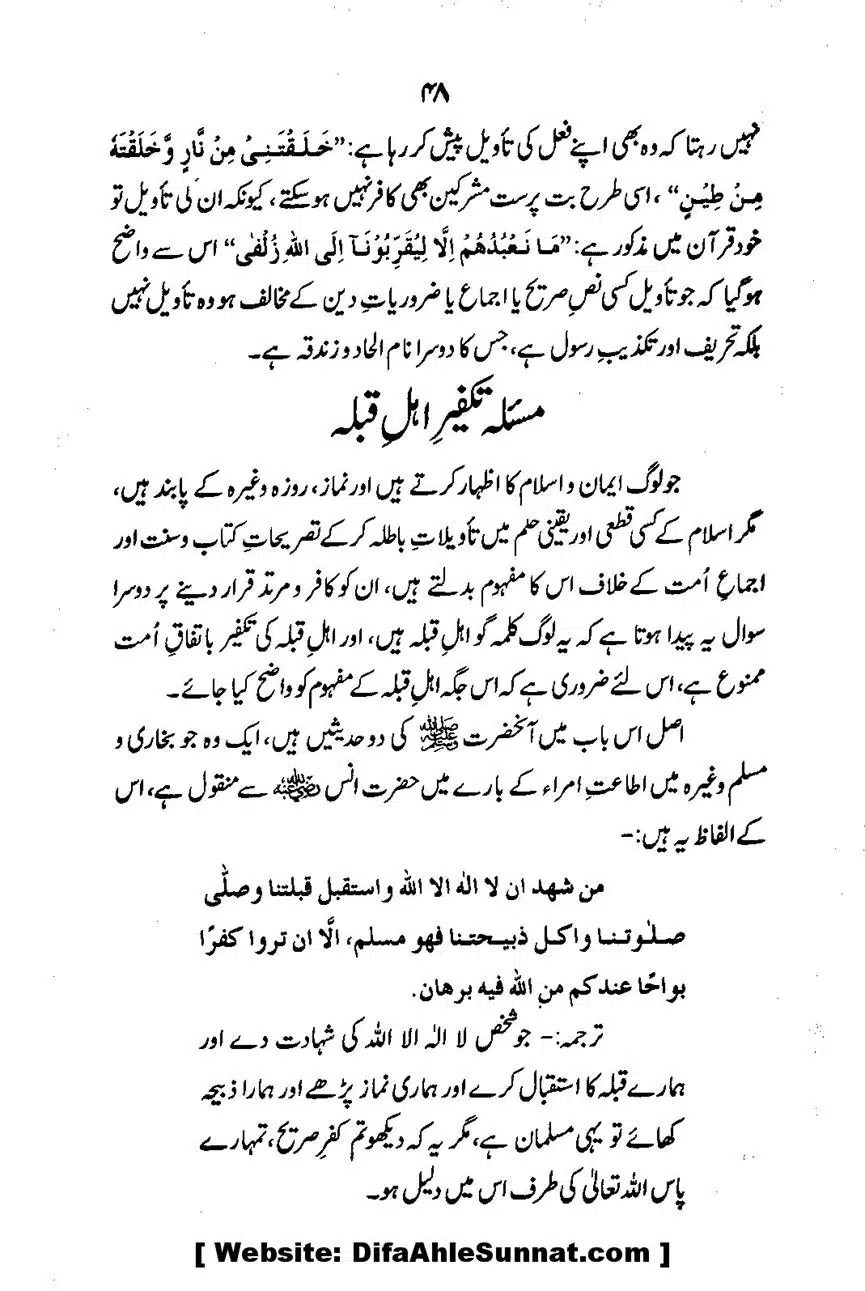 ۴۸
نہیں رہتا کہ وہ بھی اپنے فعل کی تأویل پیش کر رہا ہے: ”خَلَقْتَنِیْ مِنْ نَّارٍ وَّخَلَقْتَهٗ
مِنْ طِیْنٍ“ ، اسی طرح بت پرست مشرکین بھی کافر نہیں ہوسکتے، کیونکہ ان کی تأویل تو
خود قرآن میں مذکور ہے: ”مَا نَعْبُدُهُمْ اِلَّا لِیُقَرِّبُوْنَآ اِلَی اللهِ زُلْفٰی“ اس سے واضح
ہوگیا کہ جو تأویل کسی نصِ صریح یا اجماع یا ضروریاتِ دین کے مخالف ہو وہ تأویل نہیں
بلکہ تحریف اور تکذیبِ رسول ہے، جس کا دوسرا نام الحاد و زندقہ ہے۔
مسئلہ تکفیرِ اہلِ قبلہ
جو لوگ ایمان و اسلام کا اظہار کرتے ہیں اور نماز، روزہ وغیرہ کے پابند ہیں،
مگر اسلام کے کسی قطعی اور یقینی حکم میں تأویلاتِ باطلہ کرکے تصریحاتِ کتاب و سنت اور
اجماعِ اُمت کے خلاف اس کا مفہوم بدلتے ہیں، ان کو کافر و مرتد قرار دینے پر دوسرا
سوال یہ پیدا ہوتا ہے کہ یہ لوگ کلمہ گو اہلِ قبلہ ہیں، اور اہلِ قبلہ کی تکفیر باتفاقِ اُمت
ممنوع ہے، اس لئے ضروری ہے کہ اس جگہ اہلِ قبلہ کے مفہوم کو واضح کیا جائے۔
اصل اس باب میں آنحضرت ﷺ کی دو حدیثیں ہیں، ایک وہ جو بخاری و
مسلم وغیرہ میں اطاعتِ امراء کے بارے میں حضرت انس رضی اللہ عنہ سے منقول ہے، اس
کے الفاظ یہ ہیں:-
من شهد ان لا الٰه الا الله واستقبل قبلتنا وصلّٰی
صلٰوتنا واکل ذبیحتنا فهو مسلم، الَّا ان تروا کفرًا
بواحًا عندکم من الله فیه برهان.
ترجمہ:- جو شخص لا الٰہ الا اللہ کی شہادت دے اور
ہمارے قبلہ کا استقبال کرے اور ہماری نماز پڑھے اور ہمارا ذبیحہ
کھائے تو یہی مسلمان ہے، مگر یہ کہ دیکھو تم کفرِ صریح، تمہارے
پاس اللہ تعالیٰ کی طرف اس میں دلیل ہو۔
[ Website: DifaAhleSunnat.com ]